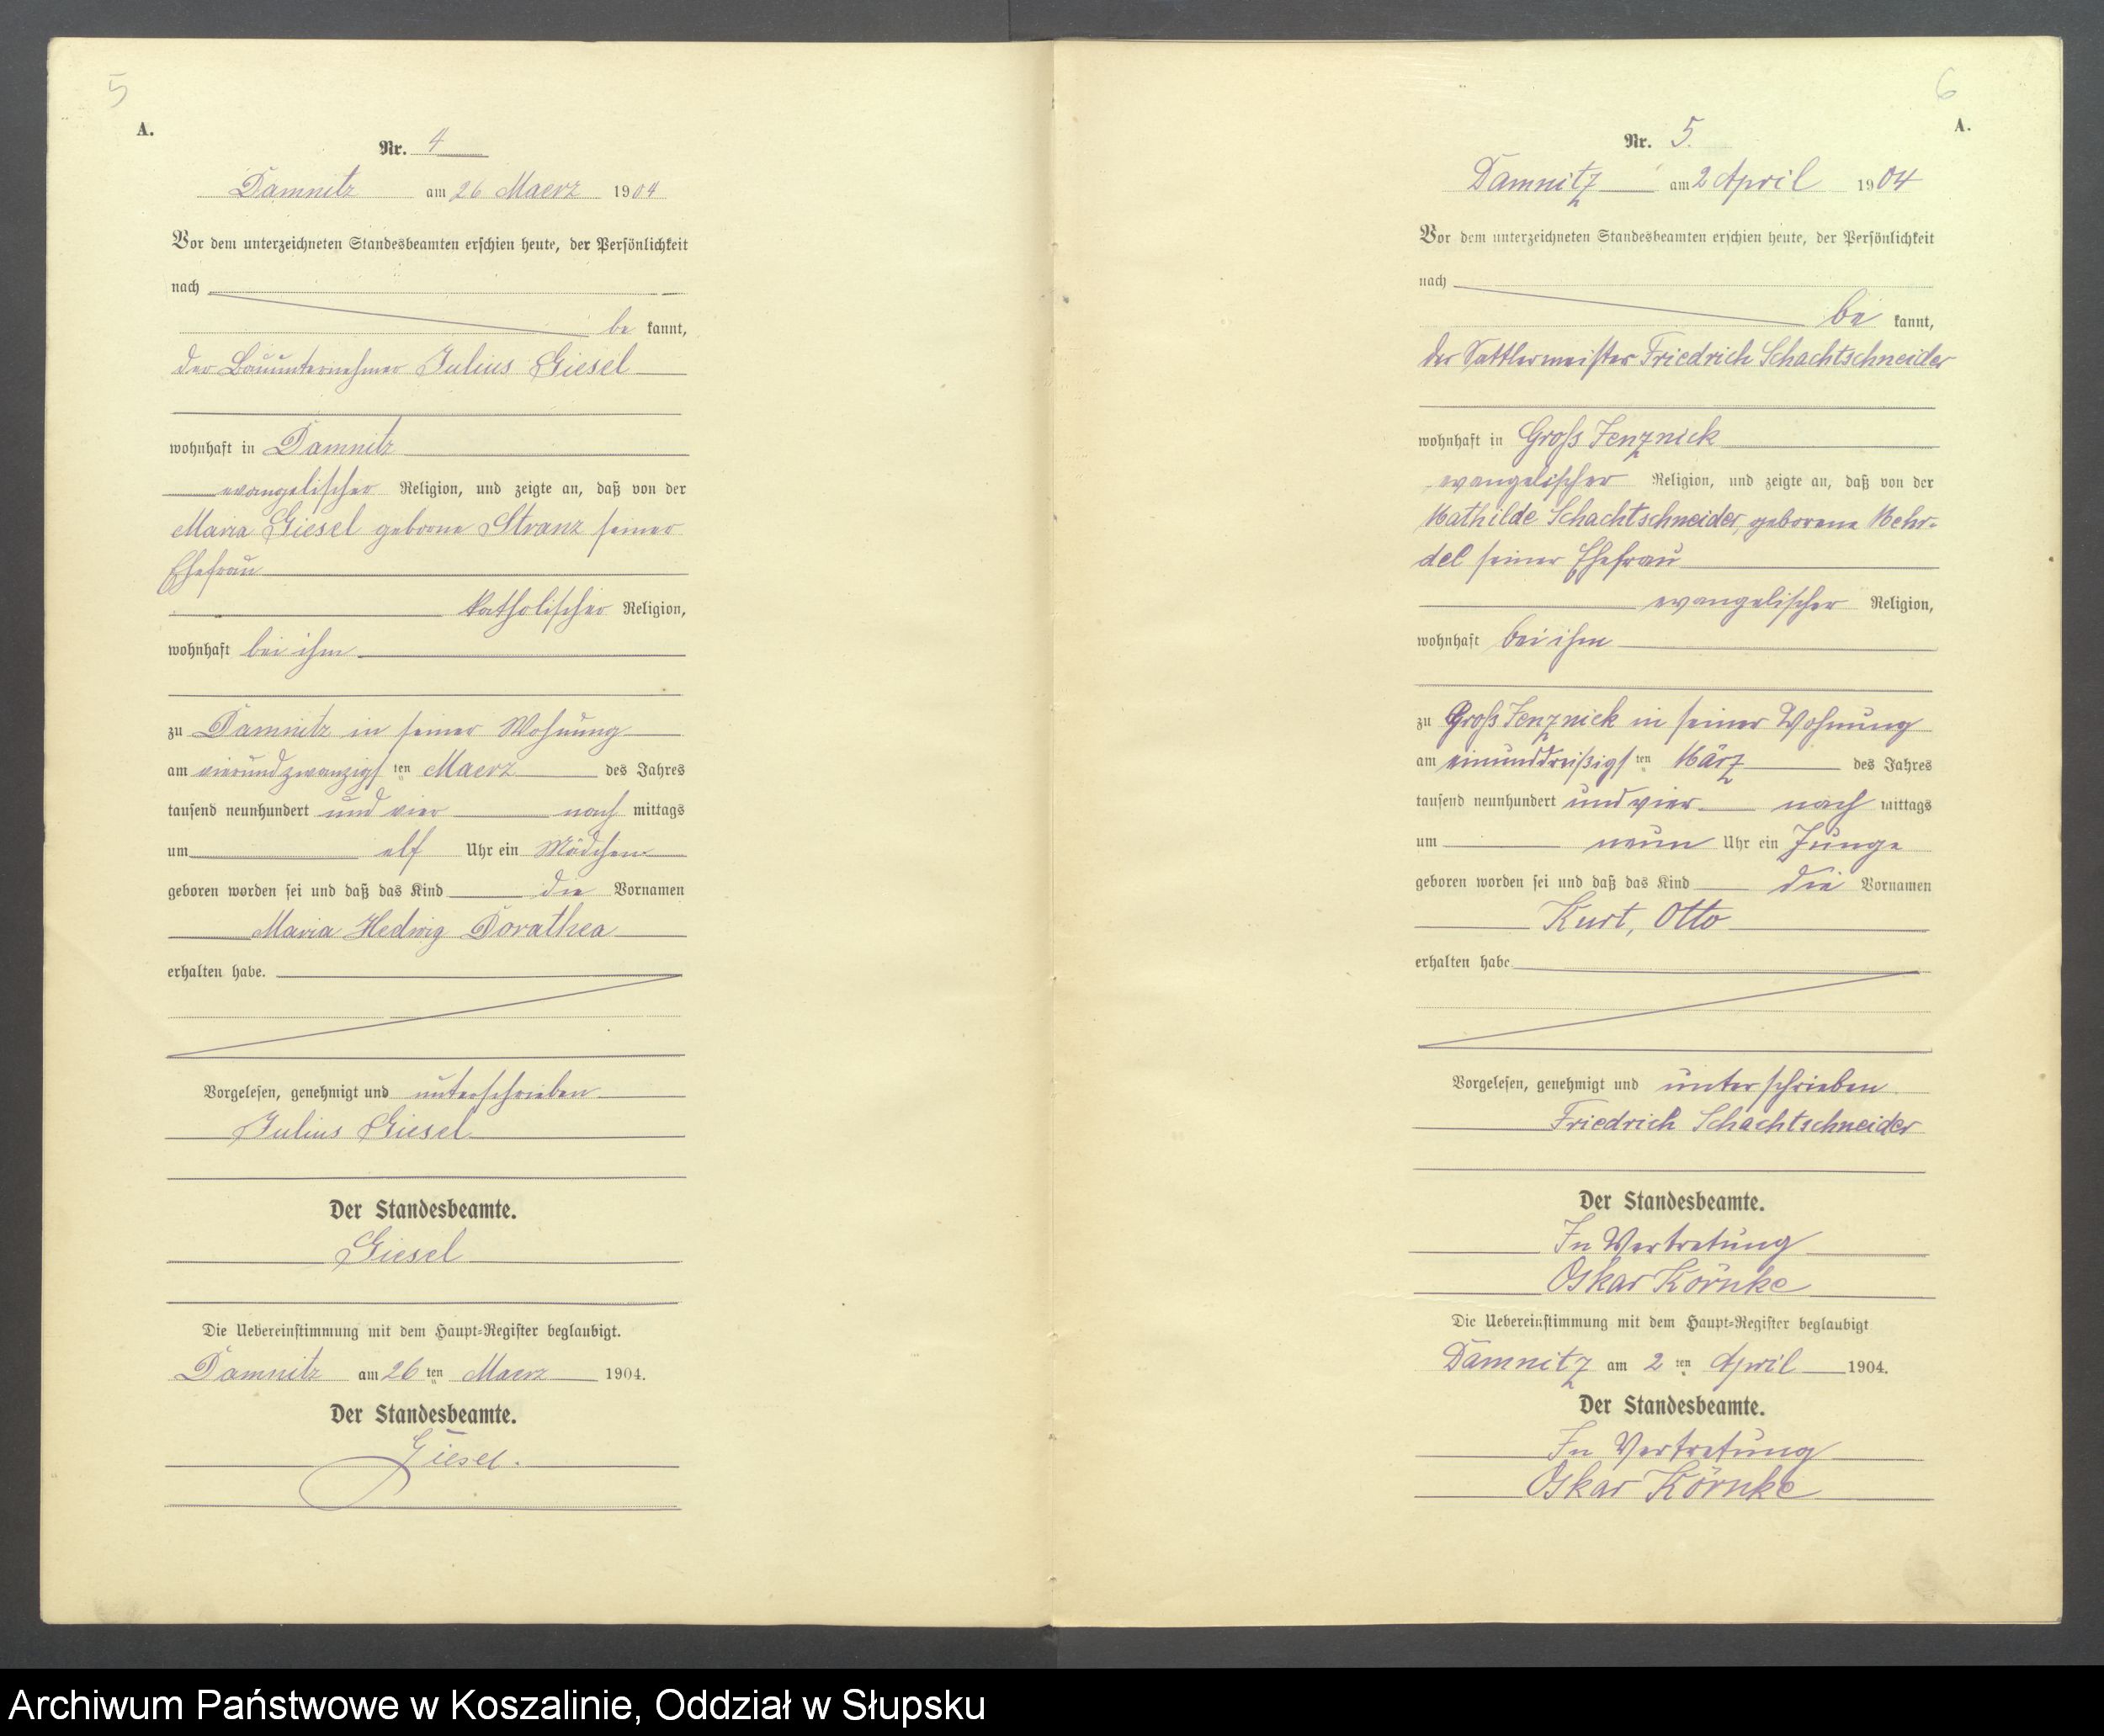 5
A.
Nr. 4
Damnitz am 26 Maerz 1904
Vor dem unterzeichneten Standesbeamten erschien heute, der Persönlichkeit
nach
be kannt,
der Bauunternehmer Julius Giesel
wohnhaft in Damnitz
evangelischer Religion, und zeigte an, daß von der
Maria Giesel geborne Stranz seiner
Ehefrau
katholischer Religion,
wohnhaft bei ihm
zu Damnitz in seiner Wohnung
am vierundzwanzigsten Maerz des Jahres
tausend neunhundert und vier nach mittags
um elf Uhr ein Mädchen
geboren worden sei und daß das Kind die Vornamen
Maria Hedwig Dorathea
erhalten habe.
Vorgelesen, genehmigt und unterschrieben
Julius Giesel
Der Standesbeamte.
Giesel
Die Uebereinstimmung mit dem Haupt-Register beglaubigt.
Damnitz am 26 ten Maerz 1904.
Der Standesbeamte.
Giesel.
6
A.
Nr. 5.
Damnitz am 2 April 1904
Vor dem unterzeichneten Standesbeamten erschien heute, der Persönlichkeit
nach
be kannt,
der Sattlermeister Friedrich Schachtschneider
wohnhaft in Groß Jenznick
evangelischer Religion, und zeigte an, daß von der
Mathilde Schachtschneider, geborene Mehr-
del seiner Ehefrau
evangelischer Religion,
wohnhaft bei ihm
zu Groß Jenznick in seiner Wohnung
am einunddreißigsten März des Jahres
tausend neunhundert und vier nach mittags
um neun Uhr ein Junge
geboren worden sei und daß das Kind die Vornamen
Kurt, Otto
erhalten habe
Vorgelesen, genehmigt und unterschrieben
Friedrich Schachtschneider
Der Standesbeamte.
In Vertretung
Oskar Körnke
Die Uebereinstimmung mit dem Haupt-Register beglaubigt
Damnitz am 2 ten April 1904.
Der Standesbeamte.
In Vertretung
Oskar Körnke
Archiwum Państwowe w Koszalinie, Oddział w Słupsku